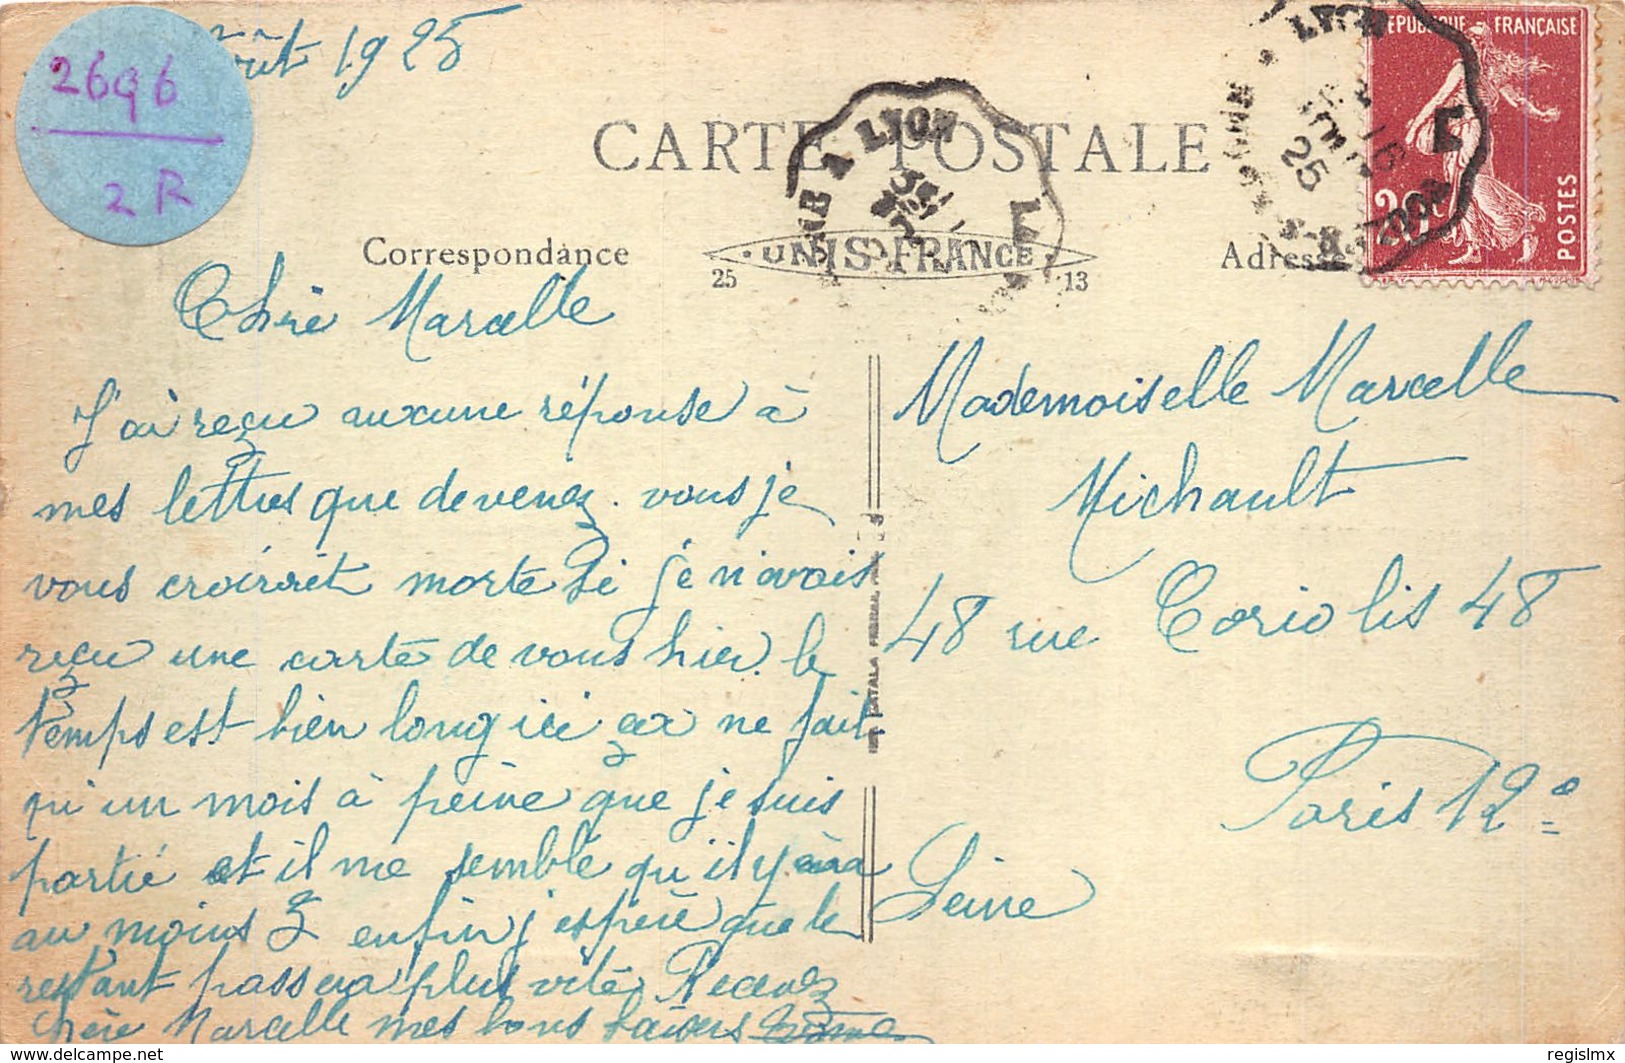 août 1925
2696
2R
CARTE POSTALE
Correspondance
· UNIS-FRANCE ·
25
13
Adresse
LYON
A LYON
25
RÉPUBLIQUE FRANÇAISE
20c
POSTES
Chère Marcelle
J'ai reçu aucune réponse à
mes lettres que devenez vous je
vous croirait morte si je n'avais
reçu une carte de vous hier. le
temps est bien long ici ça ne fait
qu'un mois à peine que je suis
partie et il me semble qu'il y en a
au moins 3 enfin j'espère que le
restant passera plus vite Recevez
chère Marcelle mes bons baisers
Mademoiselle Marcelle
Michault
48 rue Coriolis 48
Paris 12e
Seine
delcampe.net
regislmx